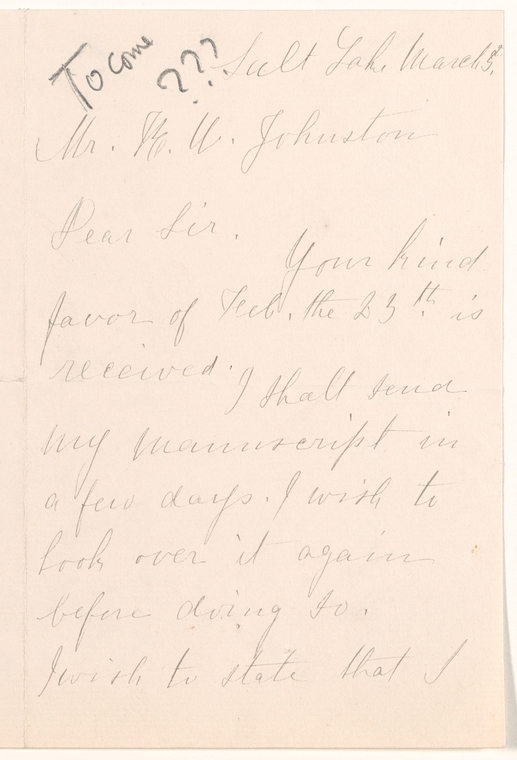 To come
???
Salt Lake March 5th
Mr. H. W. Johnston
Dear Sir.
Your kind
favor of Feb. the 23th. is
received.
I shall send
my manuscript in
a few days. I wish to
look over it again
before doing so.
I wish to state that I